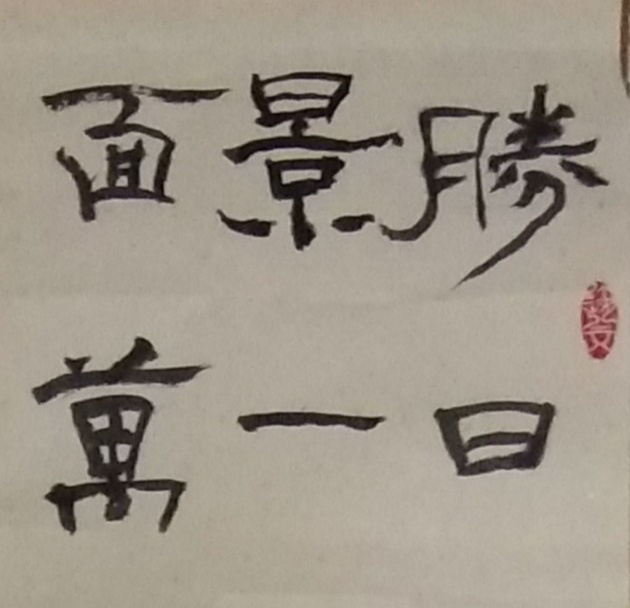 勝日
景一
面萬